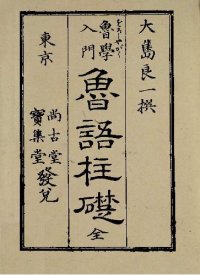 大島良一撰
魯學入門
をろしやがく
魯語柱礎 全
東京 尚古堂 寶集堂 發兌